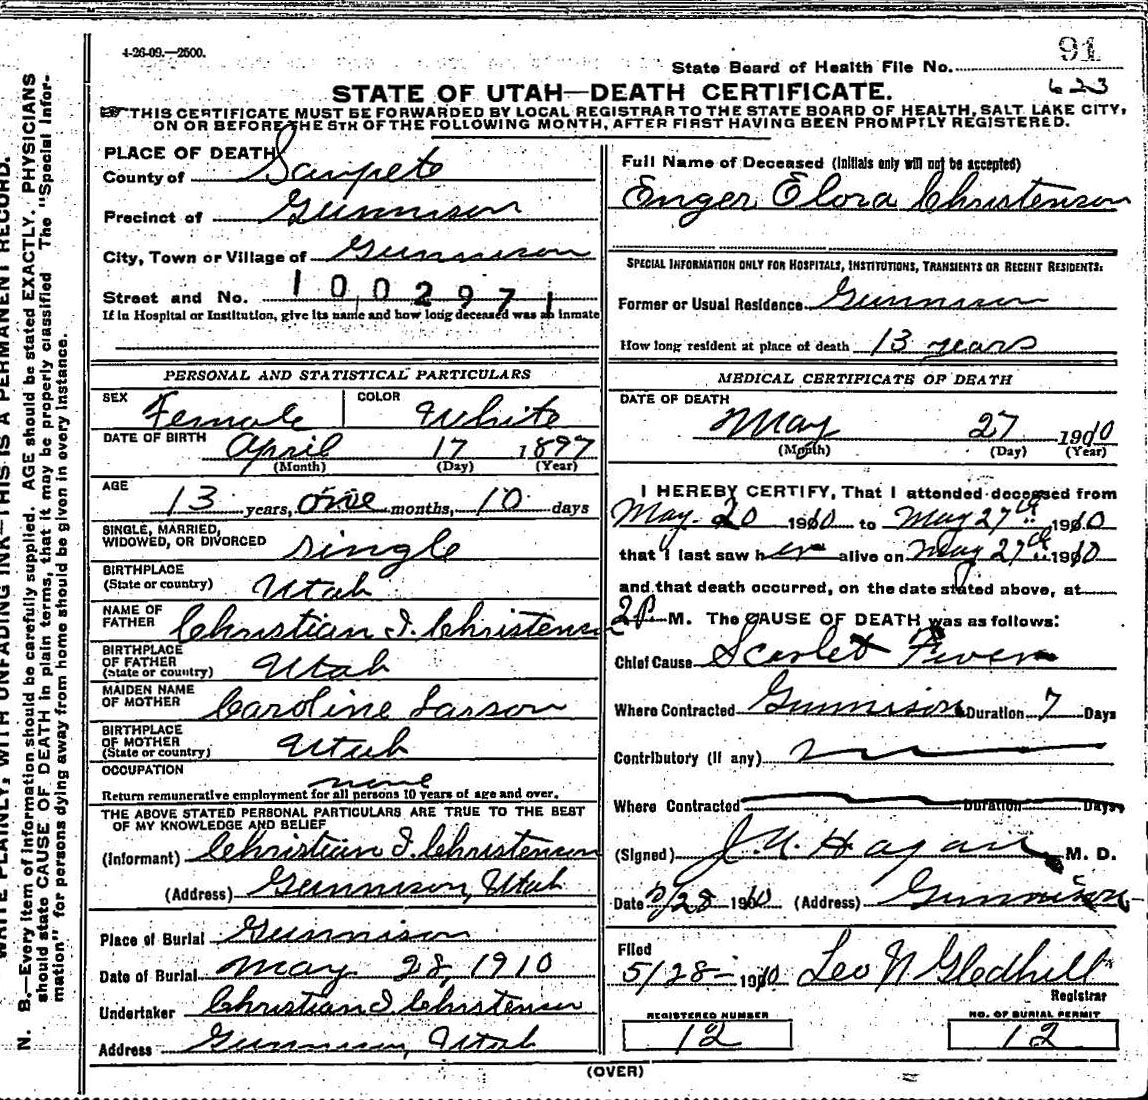 4-26-09.—2500.
91
State Board of Health File No.
623
STATE OF UTAH—DEATH CERTIFICATE.
THIS CERTIFICATE MUST BE FORWARDED BY LOCAL REGISTRAR TO THE STATE BOARD OF HEALTH, SALT LAKE CITY,
ON OR BEFORE THE 5TH OF THE FOLLOWING MONTH, AFTER FIRST HAVING BEEN PROMPTLY REGISTERED.
PLACE OF DEATH
County of Sanpete
Precinct of Gunnison
City, Town or Village of Gunnison
Street and No. 1002971
If in Hospital or Institution, give its name and how long deceased was an inmate
PERSONAL AND STATISTICAL PARTICULARS
SEX Female COLOR White
DATE OF BIRTH April 17 1897
(Month) (Day) (Year)
AGE
13 years, one months, 10 days
SINGLE, MARRIED,
WIDOWED, OR DIVORCED single
BIRTHPLACE
(State or country) Utah
NAME OF
FATHER Christian I. Christensen
BIRTHPLACE
OF FATHER
(State or country) Utah
MAIDEN NAME
OF MOTHER Caroline Larson
BIRTHPLACE
OF MOTHER
(State or country) Utah
OCCUPATION none
Return remunerative employment for all persons 10 years of age and over.
THE ABOVE STATED PERSONAL PARTICULARS ARE TRUE TO THE BEST
OF MY KNOWLEDGE AND BELIEF
(Informant) Christian I. Christensen
(Address) Gunnison, Utah
Place of Burial Gunnison
Date of Burial May 28, 1910
Undertaker Christian I. Christensen
Address Gunnison, Utah
Full Name of Deceased (Initials only will not be accepted)
Enger Elora Christensen
SPECIAL INFORMATION ONLY FOR HOSPITALS, INSTITUTIONS, TRANSIENTS OR RECENT RESIDENTS:
Former or Usual Residence Gunnison
How long resident at place of death 13 years
MEDICAL CERTIFICATE OF DEATH
DATE OF DEATH
May 27 1910
(Month) (Day) (Year)
I HEREBY CERTIFY, That I attended deceased from
May. 20 1910 to May 27th 1910
that I last saw her alive on May 27th 1910
and that death occurred, on the date stated above, at
2P. M. The CAUSE OF DEATH was as follows:
Chief Cause Scarlet Fever
Where Contracted Gunnison Duration 7 Days
Contributory (If any)
Where Contracted Duration Days
(Signed) J. U. Hagan M. D.
Date 5/28 1910 (Address) Gunnison
Filed
5/28- 1910 Leo N Gledhill
Registrar
REGISTERED NUMBER
12
NO. OF BURIAL PERMIT
12
(OVER)
WRITE PLAINLY, WITH UNFADING INK—THIS IS A PERMANENT RECORD.
N. B.—Every item of information should be carefully supplied. AGE should be stated EXACTLY. PHYSICIANS
should state CAUSE OF DEATH in plain terms, that it may be properly classified. The "Special Infor-
mation" for persons dying away from home should be given in every instance.